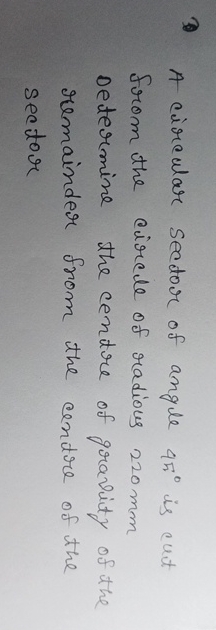 3 A circular sector of angle 45° is cut
from the circle of radious 220mm
Determine the centre of gravity of the
remainder from the centre of the
sector